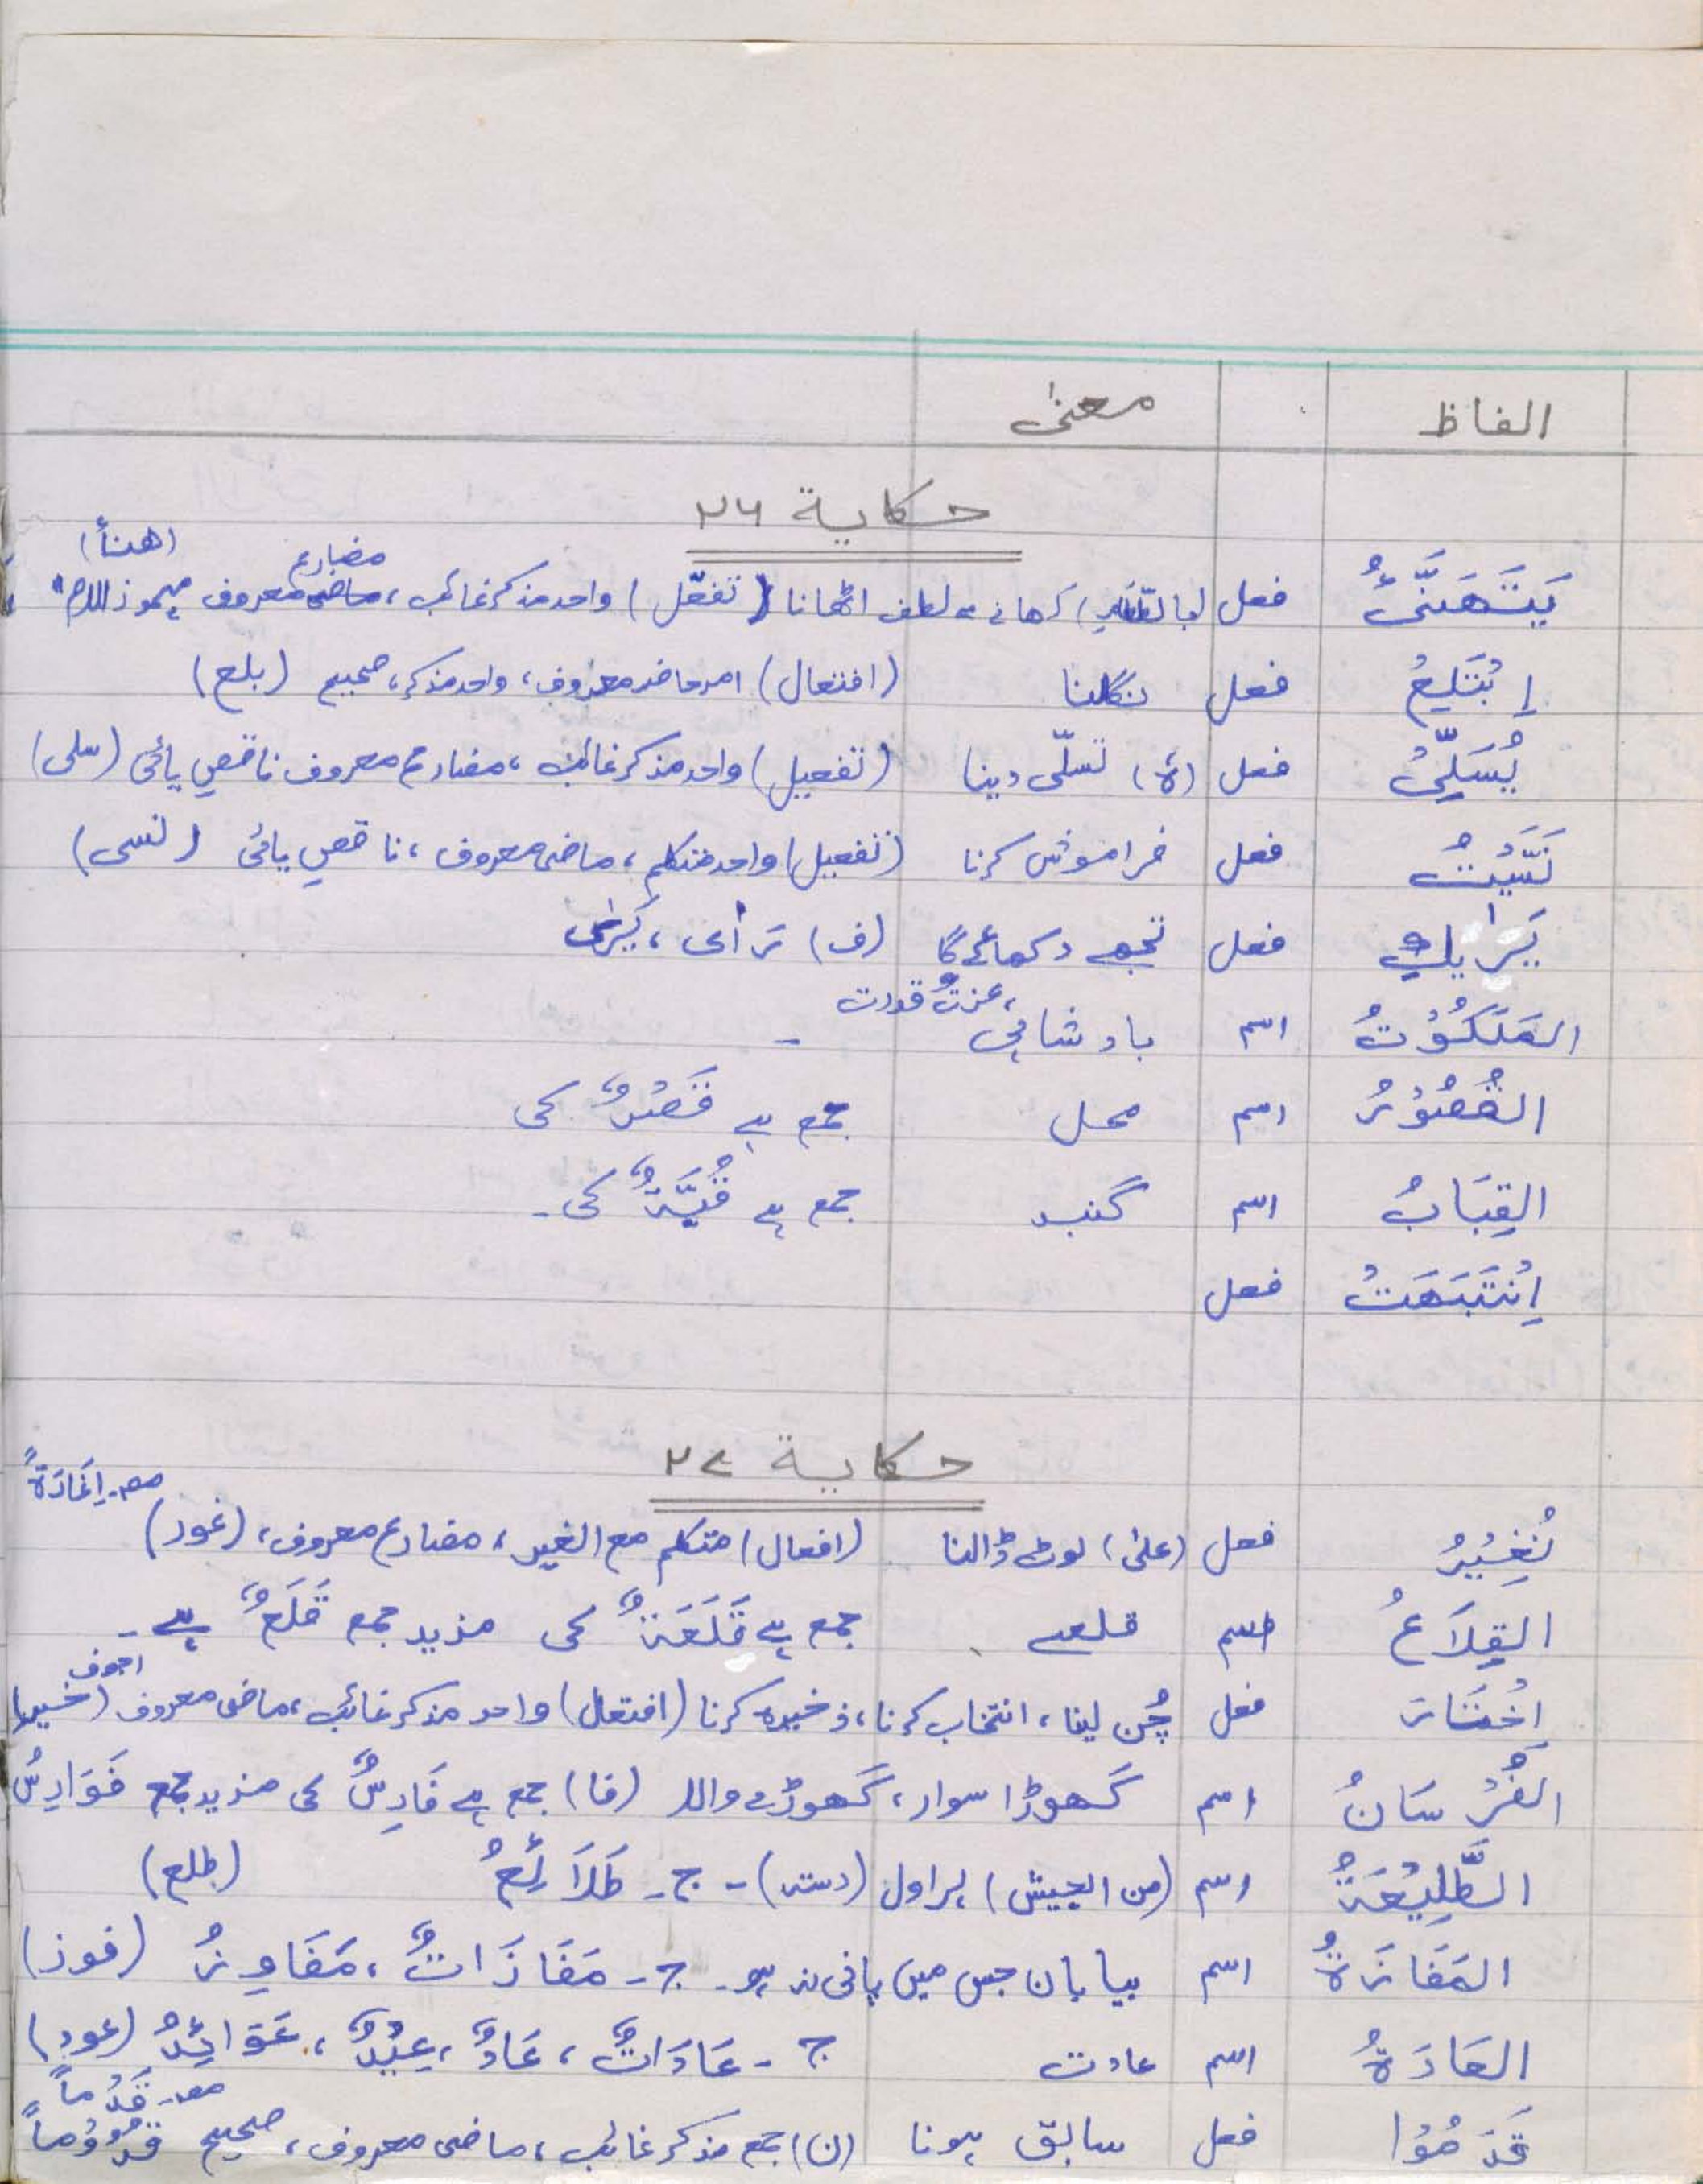 الفاظ معنیٰ
حكاية ٢٦
يَتَهَنَّىءُ فعل (بالطعام) کھانے سے لطف اٹھانا (تفعّل) واحد مذکر غائب، مضارع معروف مہموز اللام (هنأ)
إِبْتَلِعْ فعل نگلنا (افتعال) امر حاضر معروف، واحد مذکر، صحیح (بلع)
يُسَلِّيْ فعل (ہ) تسلّی دینا (تفعیل) واحد مذکر غائب، مضارع معروف ناقص یائی (سلی)
نَسَّيْتُ فعل فراموش کرنا (تفعیل) واحد متکلم، ماضی معروف، ناقص یائی (نسی)
يَرَايكِ فعل تجھے دکھائے گا (ف) رَأى، يَرٰى
المَلَكُوْتُ اسم بادشاہی، عزت، قدرت -
القُصُوْرُ اسم محل جمع ہے قَصْرٌ کی
القِبَابُ اسم گنبد جمع ہے قُبَّةٌ کی -
اِنْتَبَهَتْ فعل
حكاية ٢٧
نُغِيْرُ فعل (علیٰ) لوٹ ڈالنا (افعال) متکلم مع الغیر، مضارع معروف، (غور) مص۔ اِغَارَةً
القِلَاعُ اسم قلعے جمع ہے قَلَعَةٌ کی مزید جمع قَلَعٌ ہے -
اِخْتَارَ فعل چُن لینا، انتخاب کرنا، ذخیرہ کرنا (افتعال) واحد مذکر غائب، ماضی معروف اجوف (خیر)
الفُرْسَانُ اسم گھوڑا سوار، گھوڑے والا (فا) جمع ہے فَارِسٌ کی مزید جمع فَوَارِسُ
الطَّلِيْعَةُ اسم (من الجیش) ہراول (دستہ) - ج - طَلَائِعُ (طلع)
المَفَازَةُ اسم بیابان جس میں پانی نہ ہو - ج - مَفَازَاتٌ، مَفَاوِزُ (فوز)
العَادَةُ اسم عادت ج - عَادَاتٌ، عَادٌ، عِيْدٌ، عَوَائِدُ (عود)
قَدَمُوْا فعل سابق ہونا (ن) جمع مذکر غائب، ماضی معروف، صحیح مص۔ قَدْماً قُدُوْماً